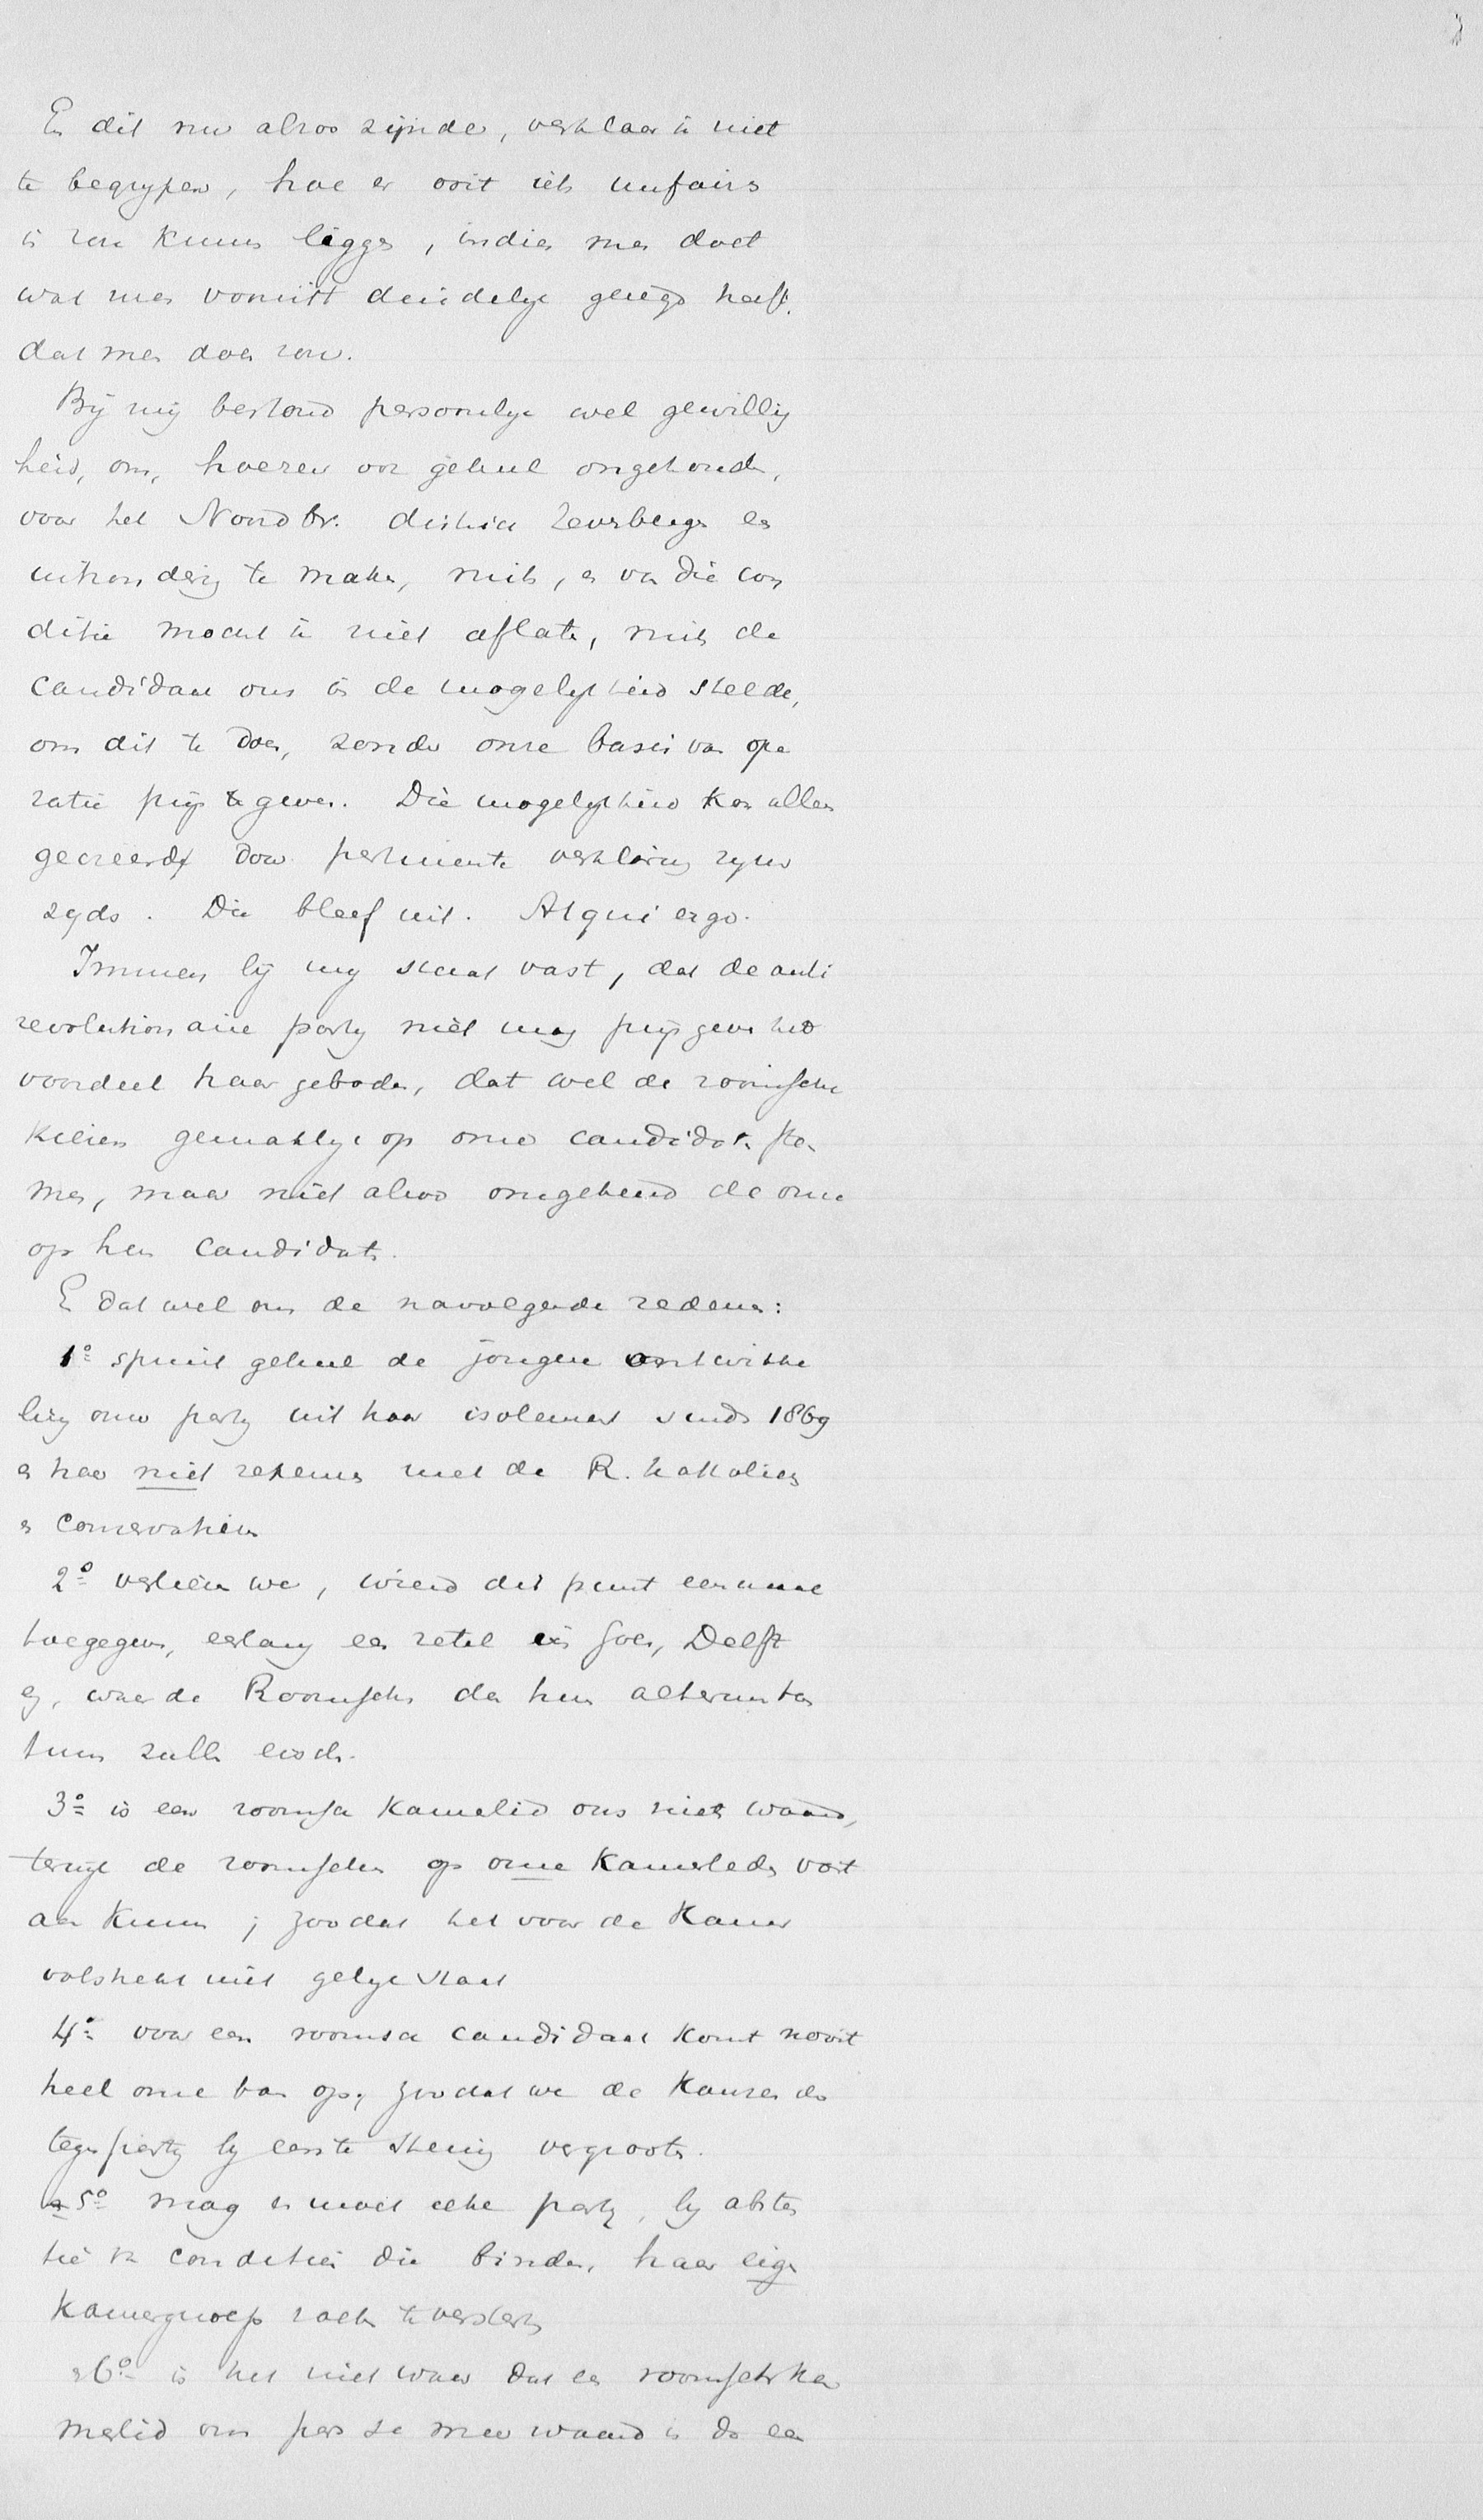 En dit nu alzoo zijnde, verklaar ik niet
te begrijpen, hoe er ooit iets unfairs
in zou kunnen liggen, indien men doet
wat men vooruit duidelijk gezegd heeft,
dat men doen zou.
Bij mij bestond persoonlijk wel gewillig
heid, om, hoezeer ook geheel ongehouden,
voor het Noordbr. district Zevenbergen een
uitzondering te maken, mits, en van die con
ditie mocht ik niet aflaten, mits de
candidaat ons in de mogelijkheid stelde,
om dit te doen, zonder onze basis van ope
ratie prijs te geven. Die mogelijkheid kon alleen
gecreeerd door pertinente verklaring zijner
zijds. Die bleef uit. Atqui ergo.
Immers bij mij staat vast, dat de anti
revolutionaire partij niet mag prijsgeven het
voordeel haar geboden, dat wel de roomsche
kiezers gemaklijk op onze candidaten stem
men, maar niet alzoo omgekeerd de onze
op hen candidaten.
En dat wel om de navolgende redenen:
1º spruit geheel de jongere ontwikke
ling onzer partij uit haar isolement sinds 1869
en haar niet rekenen met de R. Katholieken
en Conservatieven
2º verliezen we, wierd dit punt eenmaal
toegegeven, eerlang een zetel in Goes, Delft
enz, waar de Roomschen dan hun alternan
tum zullen eischen.
3º is een roomsch Kamerlid ons niets waard,
terwijl de roomschen op onze Kamerleden voort
aan kunnen; zoodat het voor de Kamer
volstrekt niet gelijk staat
4º voor een roomsch candidaat komt nooit
heel onze ban op, zoodat we de kansen der
tegenpartij bij eerste stemming vergrooten.
5º mag en moet elke partij, bij absten
tie van conditien die binden, haar eigen
Kamergroep zoeken te versterken
en 6º is het niet waar dat een roomsch Ka
merlid ons per se meer waard is dan een